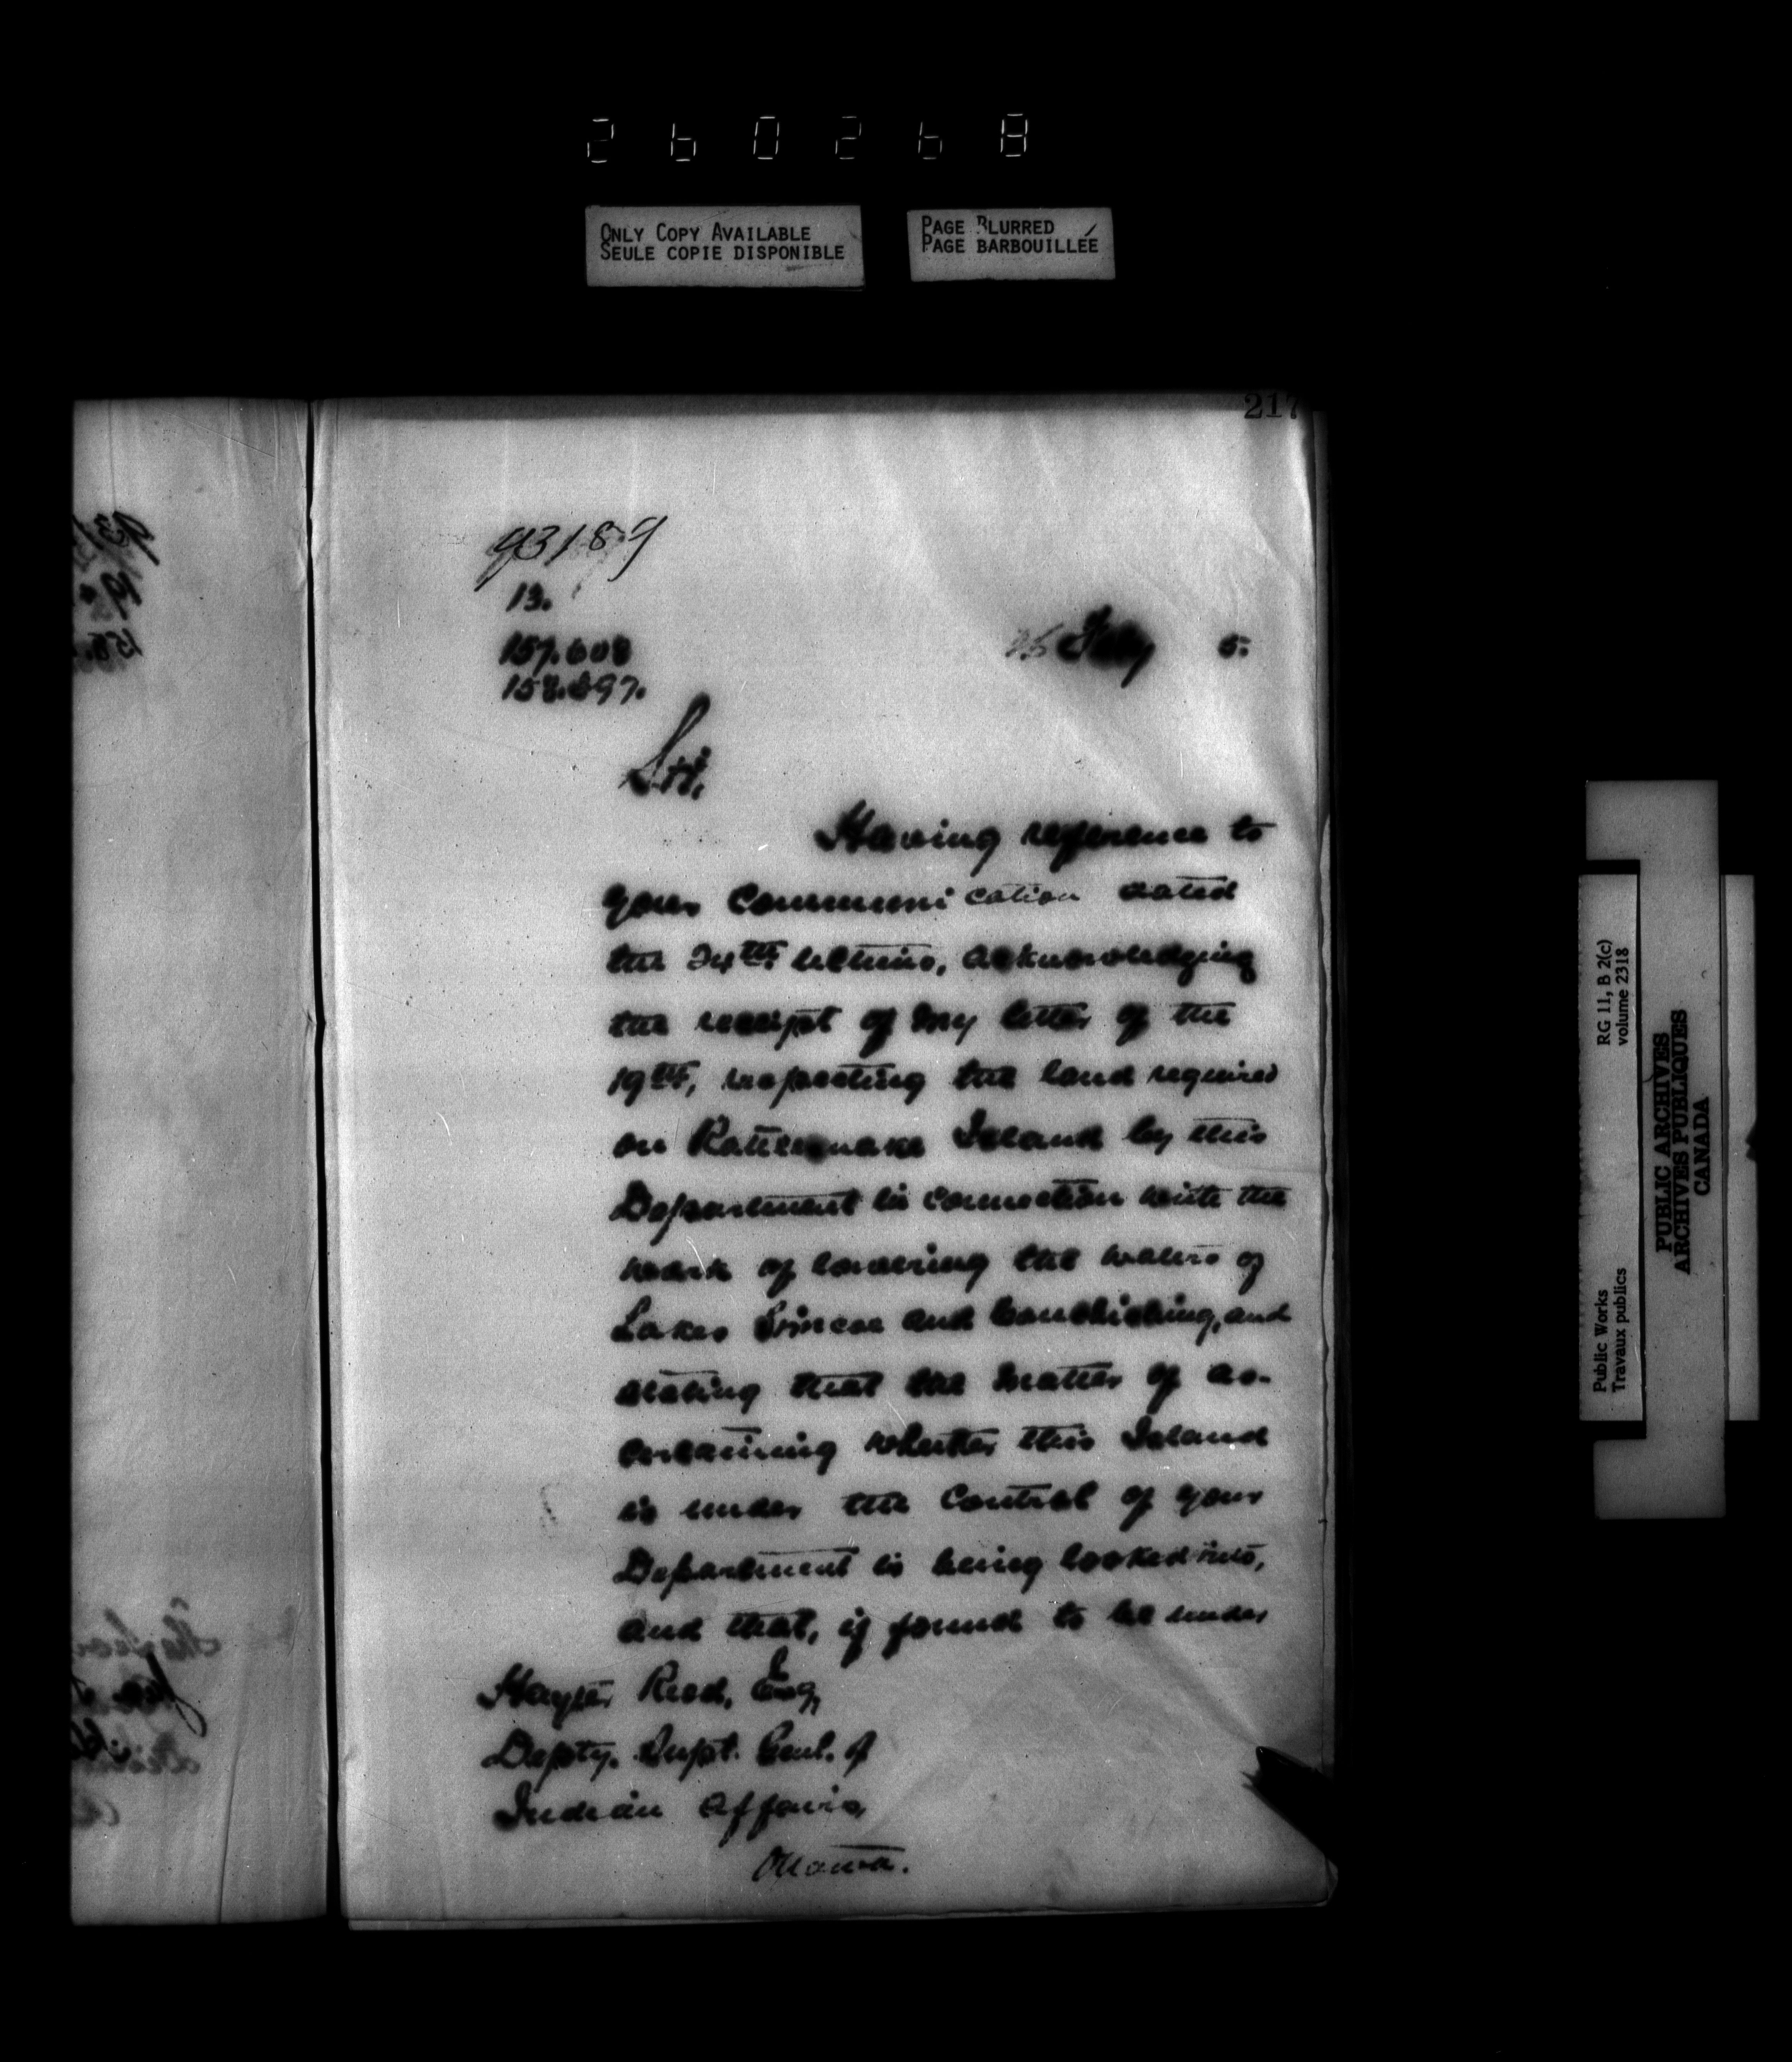 260268
ONLY COPY AVAILABLE
SEULE COPIE DISPONIBLE
PAGE BLURRED
PAGE BARBOUILLÉE
217
93189
13.
157.608
158.897.
Feby 5.
Sir,
Having reference to
your communication dated
the 24th ultimo, acknowledging
the receipt of my letter of the
19th, respecting the land required
on Rattlesnake Island by this
Department in connection with the
work of lowering the waters of
Lakes Simcoe and Couchiching, and
stating that the matter of as-
certaining whether this Island
is under the control of your
Department is being looked into,
and that, if found to be under
Hayter Reed, Esq,
Depty. Supt. Genl. of
Indian Affairs,
Ottawa.
Public Works
Travaux publics
RG 11, B 2(c)
volume 2318
PUBLIC ARCHIVES
ARCHIVES PUBLIQUES
CANADA